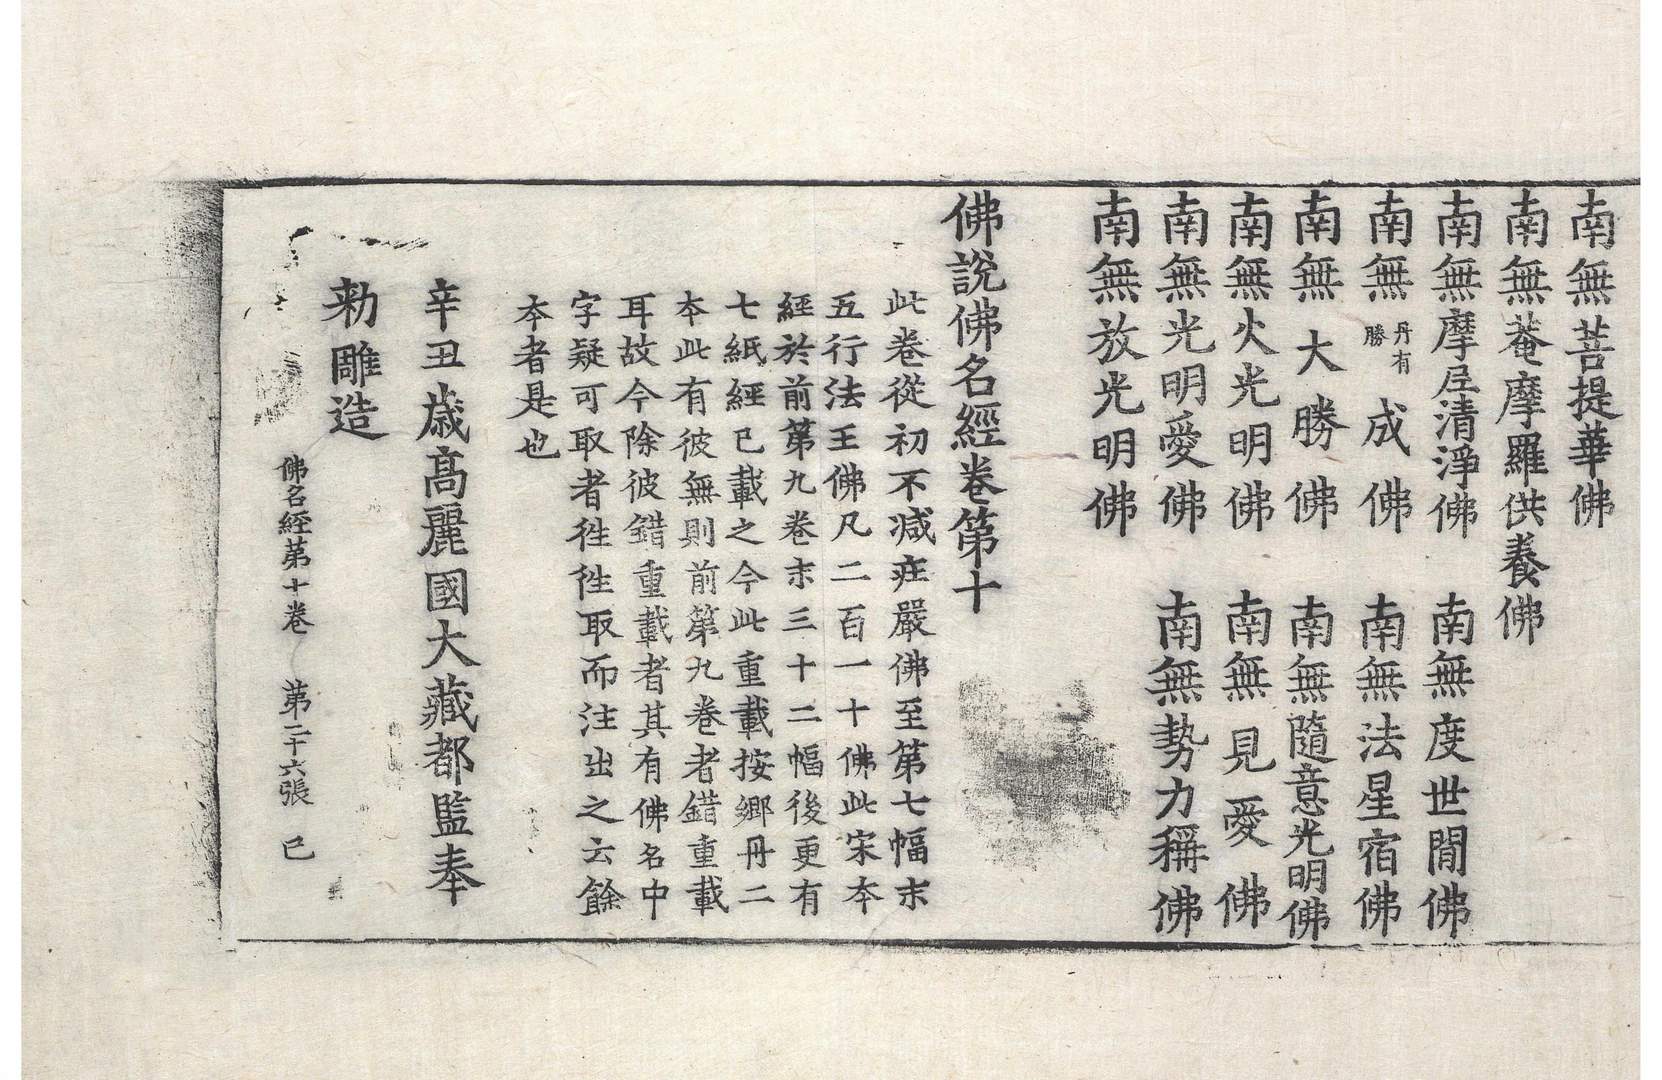 南無菩提華佛
南無菴摩羅供養佛
南無摩尼清淨佛 南無度世間佛
南無丹有勝成佛 南無法星宿佛
南無大勝佛 南無隨意光明佛
南無火光明佛 南無見愛佛
南無光明愛佛 南無勢力稱佛
南無放光明佛
佛說佛名經卷第十
此卷從初不減莊嚴佛至第七幅末
五行法王佛凡二百一十佛此宋本
經於前第九卷末三十二幅後更有
七紙經已載之今此重載按鄉丹二
本此有彼無則前第九卷者錯重載
耳故今除彼錯重載者其有佛名中
字疑可取者徃徃取而注出之云餘
本者是也
辛丑歲高麗國大藏都監奉
勅雕造
佛名經第十卷 第二十六張 已